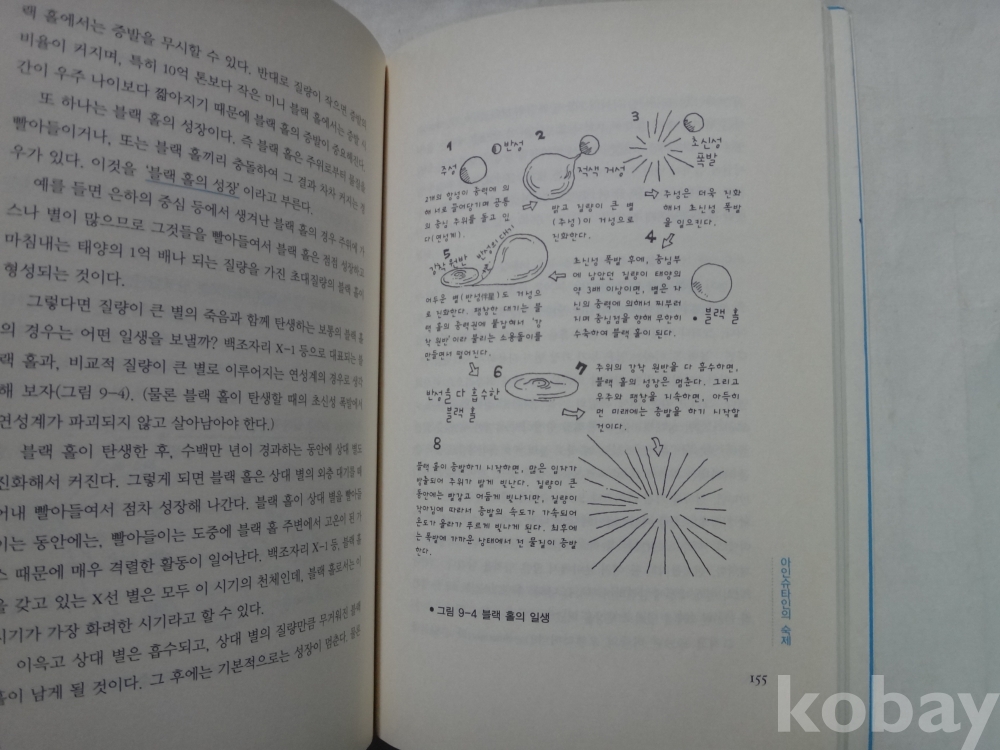 랙 홀에서는 증발을 무시할 수 있다. 반대로 질량이 작으면 증발의
비율이 커지며, 특히 10억 톤보다 작은 미니 블랙 홀에서는 증발 시
간이 우주 나이보다 짧아지기 때문에 블랙 홀의 증발이 중요해진다.
또 하나는 블랙 홀의 성장이다. 즉 블랙 홀은 주위로부터 물질을
빨아들이거나, 또는 블랙 홀끼리 충돌하여 그 결과 차차 커지는 경
우가 있다. 이것을 '블랙 홀의 성장'이라고 부른다.
예를 들면 은하의 중심 등에서 생겨난 블랙 홀의 경우 주위에 가
스나 별이 많으므로 그것들을 빨아들여서 블랙 홀은 점점 성장하고
마침내는 태양의 1억 배나 되는 질량을 가진 초대질량의 블랙 홀이
형성되는 것이다.
그렇다면 질량이 큰 별의 죽음과 함께 탄생하는 보통의 블랙 홀
의 경우는 어떤 일생을 보낼까? 백조자리 X-1 등으로 대표되는 블
랙 홀과, 비교적 질량이 큰 별로 이루어지는 연성계의 경우로 생각
해 보자(그림 9-4). (물론 블랙 홀이 탄생할 때의 초신성 폭발에서
연성계가 파괴되지 않고 살아남아야 한다.)
블랙 홀이 탄생한 후, 수백만 년이 경과하는 동안에 상대 별도
진화해서 커진다. 그렇게 되면 블랙 홀은 상대 별의 외층 대기를 떼
어내 빨아들여서 점차 성장해 나간다. 블랙 홀이 상대 별을 빨아들
이는 동안에는, 빨아들이는 도중에 블랙 홀 주변에서 고온이 된 가
스 때문에 매우 격렬한 활동이 일어난다. 백조자리 X-1 등, 블랙 홀
을 갖고 있는 X선 별은 모두 이 시기의 천체인데, 블랙 홀로서는 이
시기가 가장 화려한 시기라고 할 수 있다.
이윽고 상대 별은 흡수되고, 상대 별의 질량만큼 무거워진 블랙
홀이 남게 될 것이다. 그 후에는 기본적으로는 성장이 멈춘다. 물론
1
주성
반성
2개의 항성이 중력에 의
해 서로 끌어당기며 공통
의 중심 주위를 돌고 있
다(연성계).
2
적색 거성
밝고 질량이 큰 별
(주성)이 거성으로
진화한다.
3
초신성
폭발
주성은 더욱 진화
해서 초신성 폭발
을 일으킨다.
4
초신성 폭발 후에, 중심부
에 남았던 질량이 태양의
약 3배 이상이면, 별은 자
신의 중력에 의해서 찌부러
지며 중심점을 향해 무한히
수축하여 블랙 홀이 된다.
블랙 홀
5
강착 원반
반성의 대기
어두운 별(반성(伴星)도 거성으
로 진화한다. 팽창한 대기는 블
랙 홀의 중력권에 붙잡혀서 '강
착 원반'이라 불리는 소용돌이를
만들면서 떨어진다.
6
반성을 다 흡수한
블랙 홀
7
주위의 강착 원반을 다 흡수하면,
블랙 홀의 성장은 멈춘다. 그리고
우주의 팽창을 지속하면, 아득히
먼 미래에는 증발을 하기 시작할
것이다.
8
블랙 홀이 증발하기 시작하면, 많은 입자가
방출되어 주위가 밝게 빛난다. 질량이 큰
동안에는 빨갛고 어둡게 빛나지만, 질량이
작아짐에 따라서 증발의 속도가 가속되어
온도가 올라가 푸르게 빛나게 된다. 최후에
는 폭발에 가까운 상태에서 전 물질이 증발
한다.
• 그림 9-4 블랙 홀의 일생
아인슈타인의 숙제
155
kobay